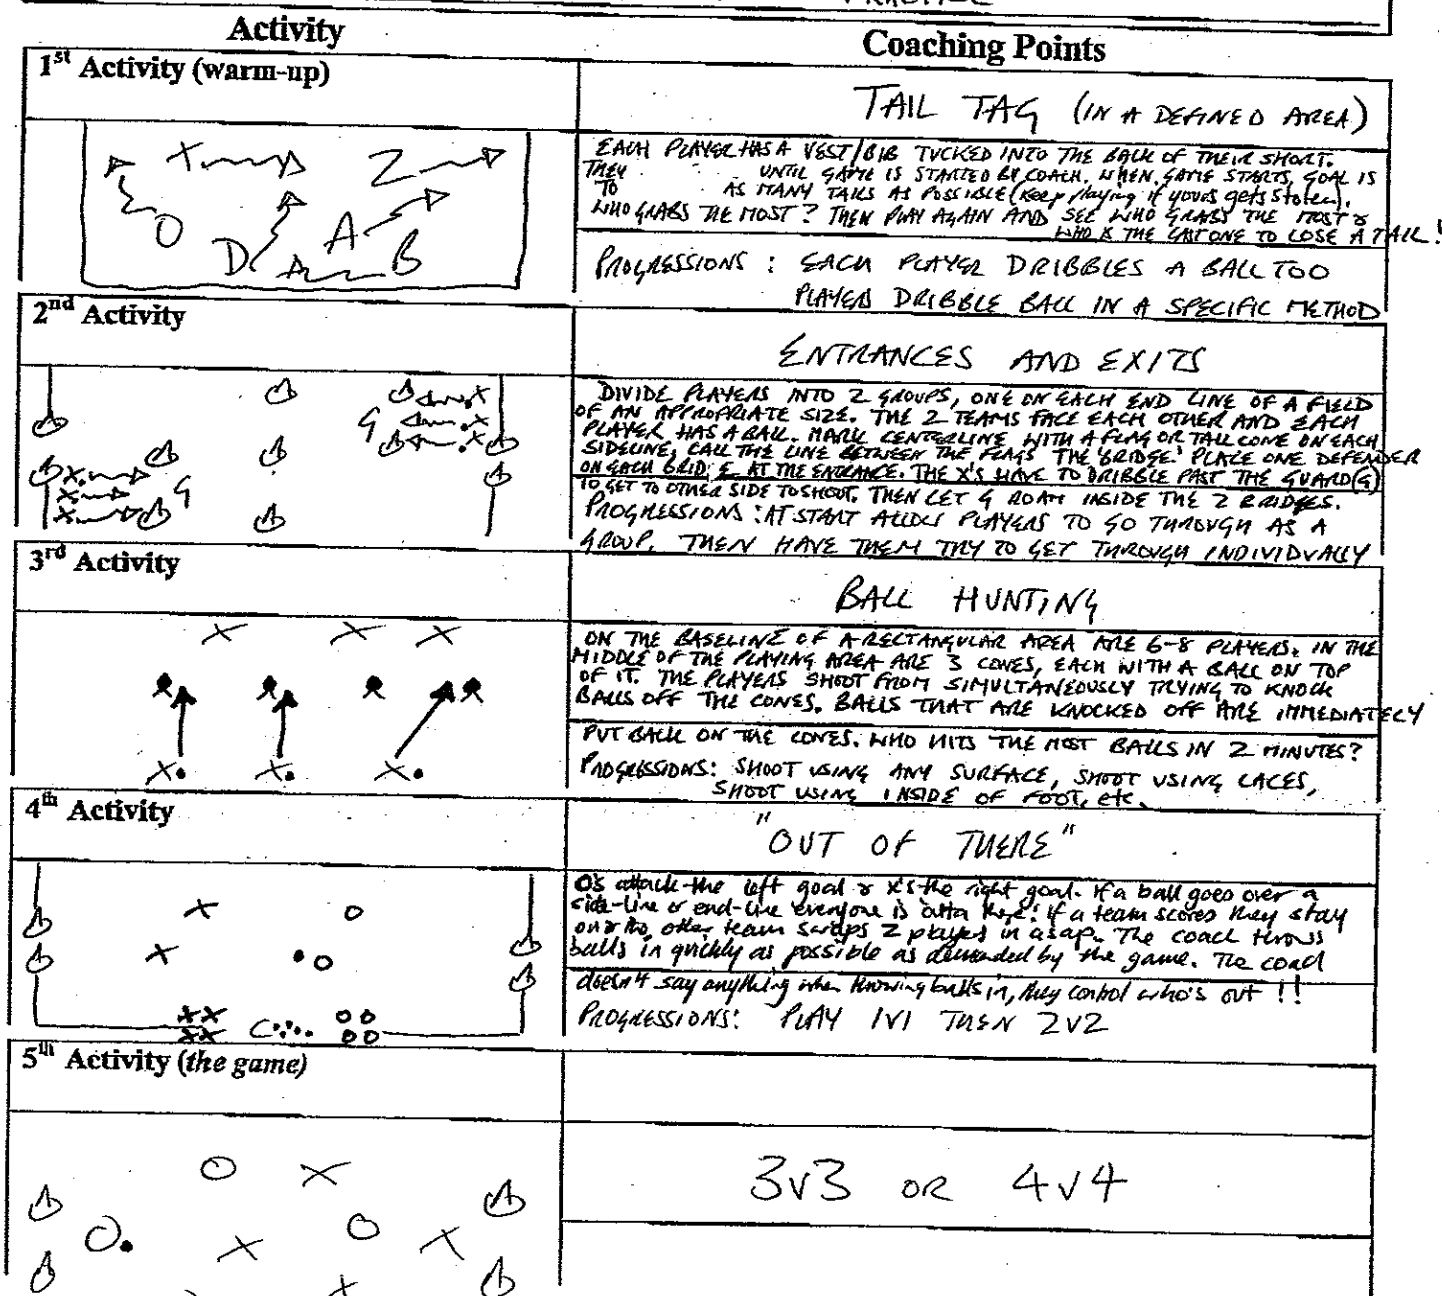 PRACTICE
Activity
Coaching Points
1st Activity (warm-up)
TAIL TAG (IN A DEFINED AREA)
EACH PLAYER HAS A VEST/BIB TUCKED INTO THE BACK OF THEIR SHORT.
THEY UNTIL GAME IS STARTED BY COACH. WHEN GAME STARTS, GOAL IS
TO AS MANY TAILS AS POSSIBLE (Keep playing if yours gets stolen).
WHO GRABS THE MOST? THEN PLAY AGAIN AND SEE WHO GRABS THE MOST &
WHO IS THE LAST ONE TO LOSE A TAIL!
PROGRESSIONS : EACH PLAYER DRIBBLES A BALL TOO
PLAYER DRIBBLE BALL IN A SPECIFIC METHOD
X Z O D A B
2nd Activity
ENTRANCES AND EXITS
DIVIDE PLAYERS INTO 2 GROUPS, ONE ON EACH END LINE OF A FIELD
OF AN APPROPRIATE SIZE. THE 2 TEAMS FACE EACH OTHER AND EACH
PLAYER HAS A BALL. MARK CENTERLINE WITH A FLAG OR TALL CONE ON EACH
SIDELINE, CALL THE LINE BETWEEN THE FLAGS THE 'BRIDGE.' PLACE ONE DEFENDER
ON EACH BRIDGE AT THE ENTRANCE. THE X'S HAVE TO DRIBBLE PAST THE GUARD(G)
TO GET TO OTHER SIDE TO SHOOT. THEN LET G ROAM INSIDE THE 2 BRIDGES.
PROGRESSIONS : AT START ALLOW PLAYERS TO GO THROUGH AS A
GROUP. THEN HAVE THEM TRY TO GET THROUGH INDIVIDUALLY
X G
X G
X
X
X
X
3rd Activity
BALL HUNTING
ON THE BASELINE OF A RECTANGULAR AREA ARE 6-8 PLAYERS. IN THE
MIDDLE OF THE PLAYING AREA ARE 3 CONES, EACH WITH A BALL ON TOP
OF IT. THE PLAYERS SHOOT FROM SIMULTANEOUSLY TRYING TO KNOCK
BALLS OFF THE CONES. BALLS THAT ARE KNOCKED OFF ARE IMMEDIATELY
PUT BACK ON THE CONES. WHO HITS THE MOST BALLS IN 2 MINUTES?
PROGRESSIONS: SHOOT USING ANY SURFACE, SHOOT USING LACES,
SHOOT USING INSIDE OF FOOT, etc.
X X X
X X X
4th Activity
"OUT OF THERE"
O's attack the left goal & x's the right goal. If a ball goes over a
side-line or end-line everyone is outta there! If a team scores they stay
on & the other team swaps 2 players in asap. The coach throws
balls in quickly as possible as demanded by the game. The coach
doesn't say anything when throwing balls in, they control who's out !!
PROGRESSIONS: PLAY 1V1 THEN 2V2
X O
X O
XX C OO
XX OO
5th Activity (the game)
3v3 OR 4v4
O X
O X O X
X